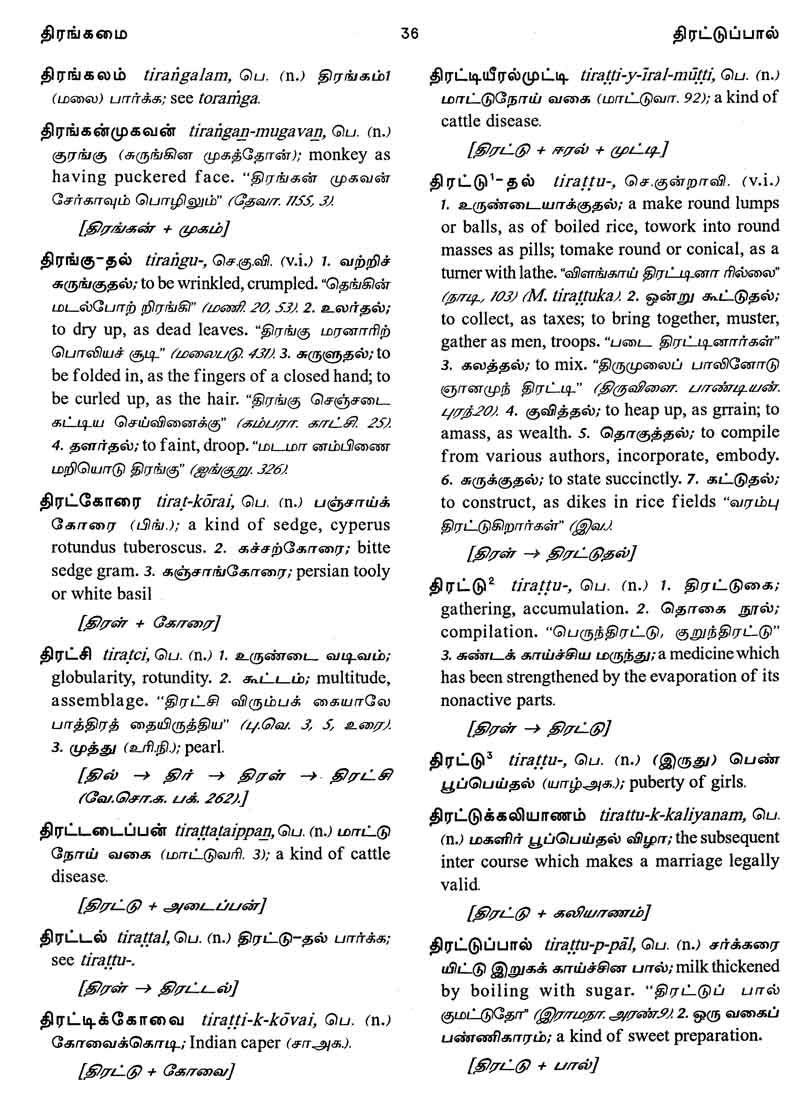 திரங்கமை
36
திரட்டுப்பால்
திரங்கலம் tiraṅgalam, பெ. (n.) திரங்கம்1
(மலை) பார்க்க; see toraṁga.
திரங்கன்முகவன் tiraṅgaṉ-mugavaṉ, பெ. (n.)
குரங்கு (சுருங்கின முகத்தோன்); monkey as
having puckered face. "திரங்கன் முகவன்
சேர்காவும் பொழிலும்" (தேவா. 1155, 3).
[திரங்கன் + முகம்]
திரங்கு-தல் tiraṅgu-, செ.கு.வி. (v.i.) 1. வற்றிச்
சுருங்குதல்; to be wrinkled, crumpled. "தெங்கின்
மடல்போற் றிரங்கி" (மணி. 20, 53). 2. உலர்தல்;
to dry up, as dead leaves. "திரங்கு மரனாரிற்
பொலியச் சூடி" (மலைபடு. 431). 3. சுருளுதல்; to
be folded in, as the fingers of a closed hand; to
be curled up, as the hair. "திரங்கு செஞ்சடை
கட்டிய செய்வினைக்கு" (கம்பரா. காட்சி. 25).
4. தளர்தல்; to faint, droop. "மடமா னம்பிணை
மறியொடு திரங்கு" (ஐங்குறு. 326).
திரட்கோரை tiraṭ-kōrai, பெ. (n.) பஞ்சாய்க்
கோரை (பிங்.); a kind of sedge, cyperus
rotundus tuberoscus. 2. கச்சற்கோரை; bitte
sedge gram. 3. கஞ்சாங்கோரை; persian tooly
or white basil
[திரள் + கோரை]
திரட்சி tiraṭci, பெ. (n.) 1. உருண்டை வடிவம்;
globularity, rotundity. 2. கூட்டம்; multitude,
assemblage. "திரட்சி விரும்பக் கையாலே
பாத்திரத் தையிருத்திய" (பு.வெ. 3, 5, உரை).
3. முத்து (உரி.நி.); pearl.
[தில் → திர் → திரள் → திரட்சி
(வே.சொ.க. பக். 262).]
திரட்டடைப்பன் tiraṭṭaṭaippaṉ, பெ. (n.) மாட்டு
நோய் வகை (மாட்டுவரி. 3); a kind of cattle
disease.
[திரட்டு + அடைப்பன்]
திரட்டல் tiraṭṭal, பெ. (n.) திரட்டு-தல் பார்க்க;
see tiraṭṭu-.
[திரள் → திரட்டல்]
திரட்டிக்கோவை tiraṭṭi-k-kōvai, பெ. (n.)
கோவைக்கொடி; Indian caper (சா.அக.).
[திரட்டு + கோவை]
திரட்டியீரல்முட்டி tiraṭṭi-y-īral-mūṭṭi, பெ. (n.)
மாட்டுநோய் வகை (மாட்டுவா. 92); a kind of
cattle disease.
[திரட்டு + ஈரல் + முட்டி]
திரட்டு¹-தல் tiraṭṭu-, செ.குன்றாவி. (v.i.)
1. உருண்டையாக்குதல்; a make round lumps
or balls, as of boiled rice, towork into round
masses as pills; tomake round or conical, as a
turner with lathe. "விளங்காய் திரட்டினா ரில்லை"
(நாடி, 103) (M. tiraṭtuka). 2. ஒன்று கூட்டுதல்;
to collect, as taxes; to bring together, muster,
gather as men, troops. "படை திரட்டினார்கள்"
3. கலத்தல்; to mix. "திருமுலைப் பாலினோடு
ஞானமுந் திரட்டி" (திருவிளை. பாண்டியன்.
புரந்.20). 4. குவித்தல்; to heap up, as grrain; to
amass, as wealth. 5. தொகுத்தல்; to compile
from various authors, incorporate, embody.
6. சுருக்குதல்; to state succinctly. 7. கட்டுதல்;
to construct, as dikes in rice fields "வரம்பு
திரட்டுகிறார்கள்" (இவ).
[திரள் → திரட்டுதல்]
திரட்டு² tiraṭṭu-, பெ. (n.) 1. திரட்டுகை;
gathering, accumulation. 2. தொகை நூல்;
compilation. "பெருந்திரட்டு, குறுந்திரட்டு"
3. சுண்டக் காய்ச்சிய மருந்து; a medicine which
has been strengthened by the evaporation of its
nonactive parts.
[திரள் → திரட்டு]
திரட்டு³ tiraṭṭu-, பெ. (n.) (இருது) பெண்
பூப்பெய்தல் (யாழ்அக.); puberty of girls.
திரட்டுக்கலியாணம் tirattu-k-kaliyanam, பெ.
(n.) மகளிர் பூப்பெய்தல் விழா; the subsequent
inter course which makes a marriage legally
valid.
[திரட்டு + கலியாணம்]
திரட்டுப்பால் tiraṭṭu-p-pāl, பெ. (n.) சர்க்கரை
யிட்டு இறுகக் காய்ச்சின பால்; milk thickened
by boiling with sugar. "திரட்டுப் பால்
குமட்டுதோ" (இராமநா. அரண்.9). 2. ஒரு வகைப்
பண்ணிகாரம்; a kind of sweet preparation.
[திரட்டு + பால்]